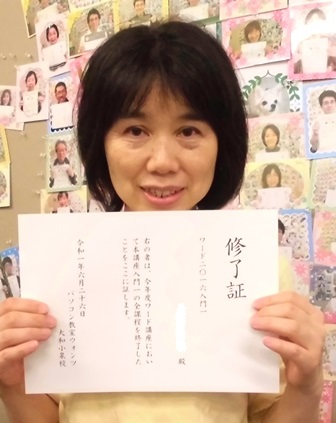 修了証
ワード二〇一六入門一
殿
右の者は、今年度ワード講座におい
て本講座入門一の全課程を終了した
ことをここに証します。
令和一年六月二十六日
パソコン教室ウォンツ
大和小泉校